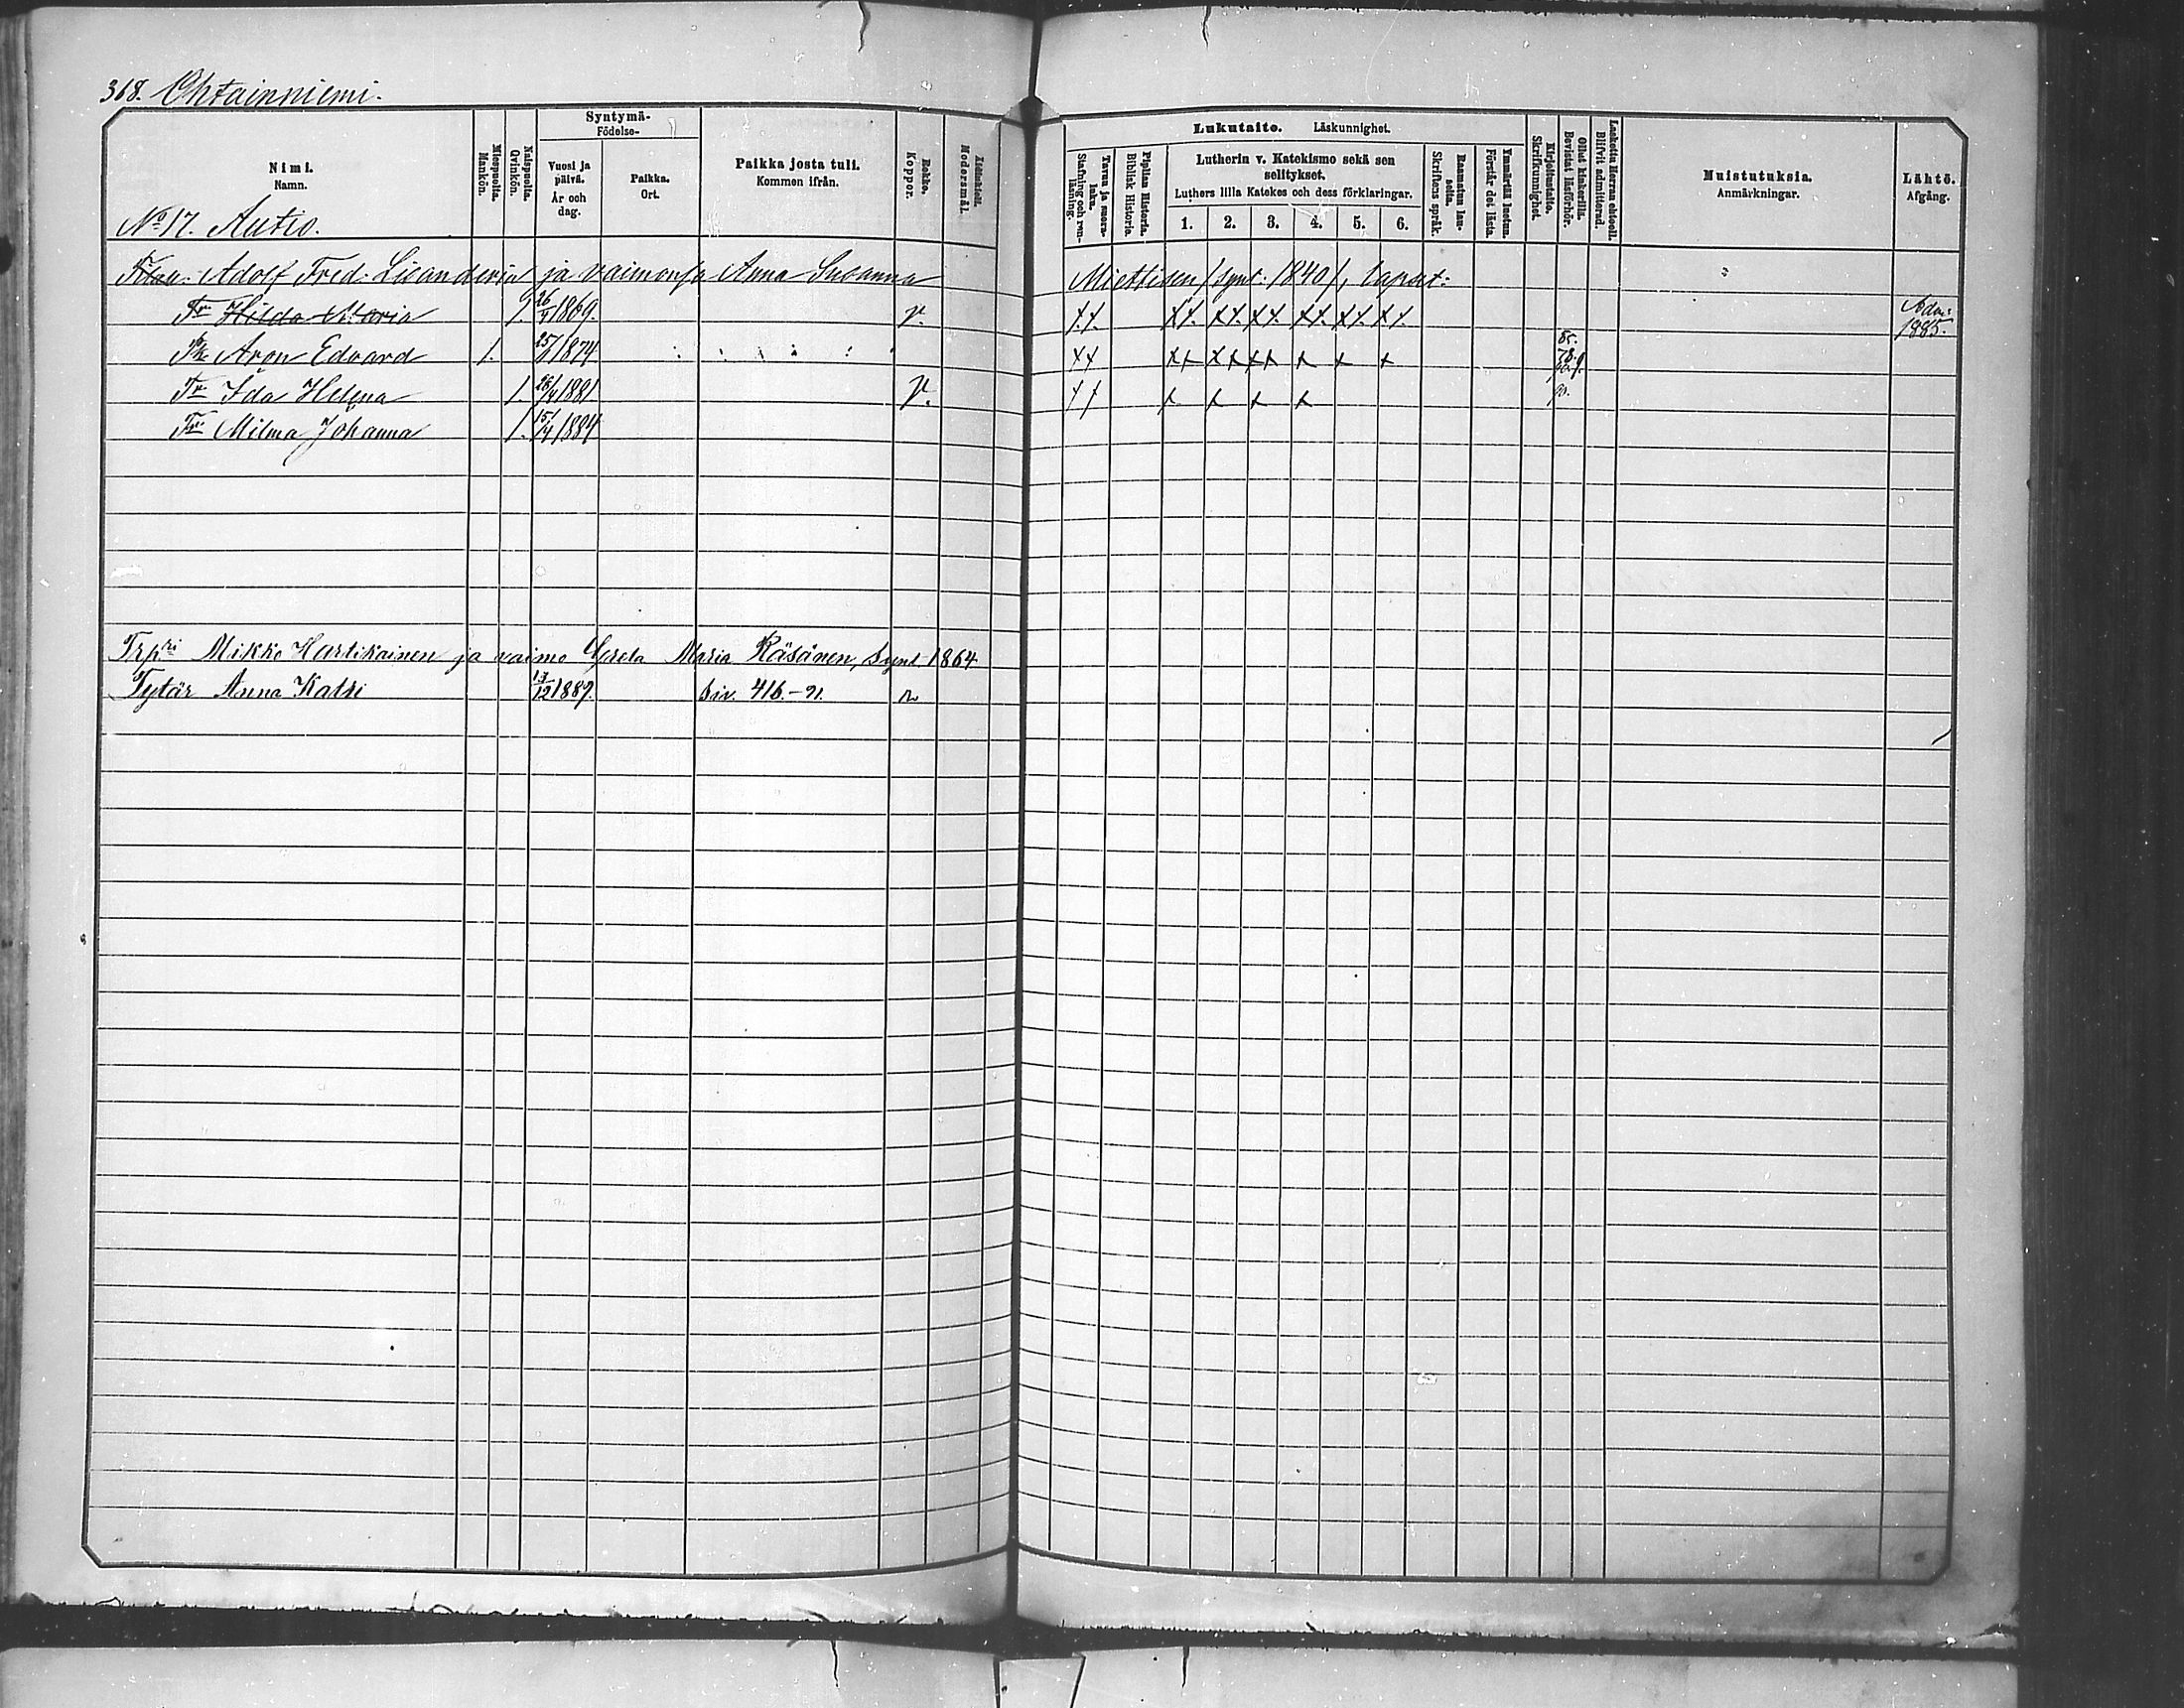 368. Ohtainniemi.
Syntymä-
Födelse-
Nimi.
Namn.
Miespuolia.
Mankön.
Naispuolia.
Qvinkön.
Vuosi ja päivä.
År och dag.
Paikka.
Ort.
Paikka josta tuli.
Kommen ifrån.
Rokko.
Koppor.
Äidinkieli.
Modersmål.
Lukutaito. Läskunnighet.
Tavuu ja suora-luku.
Stafning och ren-läsning.
Piplian Historia.
Biblisk Historie.
Lutherin v. Katekismo sekä sen selitykset.
Luthers lilla Katekes och dess förklaringar.
1. 2. 3. 4. 5. 6.
Raamatun lau-seita.
Skriftens språk.
Ymmärtää luetun.
Förstår det lästa.
Kirjoitustaito.
Skrifkunnighet.
Ollut kinkerillä.
Bevistat läsförhör.
Laskettu Herran ehtooll.
Blifvit admitterad.
Muistutuksia.
Anmärkningar.
Lähtö.
Afgång.
No 17. Autio.
Adolf Fred. ja vaimonsa Anna Susanna Miettisen / synt. 1840 /, lapset:
Tr Hilda Maria 1. 26 1869. v. Adm: 1885.
Aron Edvard 1. 25 1874 85.
Tr Ida Helena 1. 26/4 1881 v. 90.
Tr Milma Johanna 1. 15/4 1884
Mikko Hartikainen ja vaimo Greta Maria Räsänen, synt 1864
Tytär Anna Katri 12 1889. siv. 416.-91. r